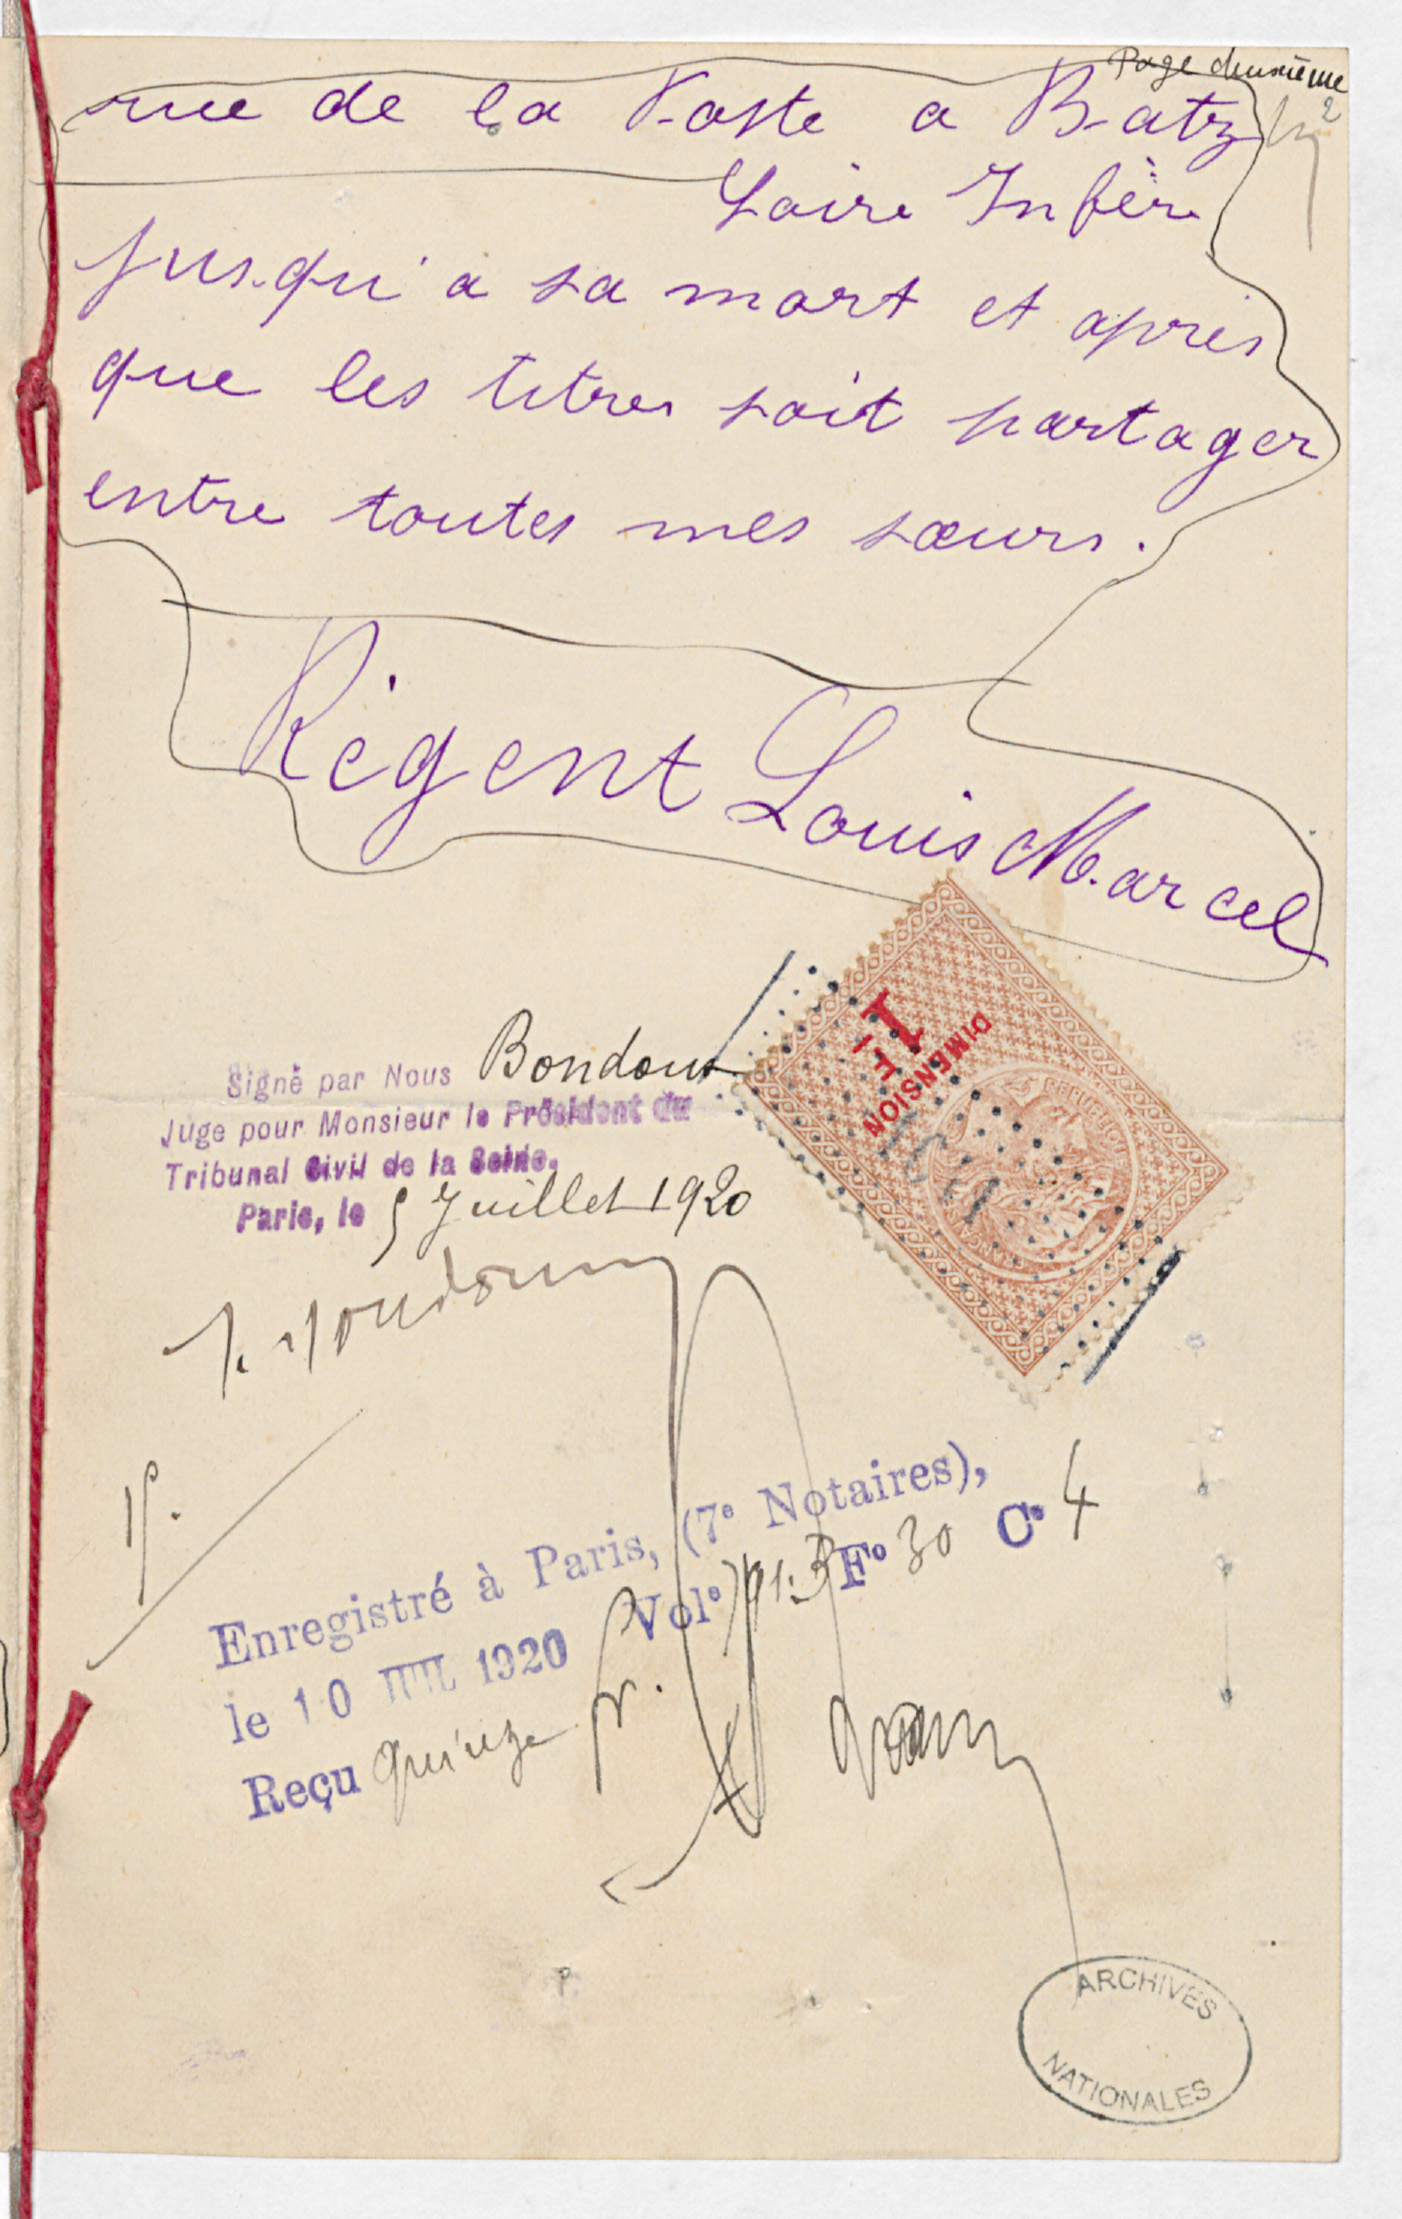 Page deuxième
2
rue de la Poste a Batz
Loire Infèr
Jusqu'a sa mort et après
que les titres soit partager
entre toutes mes sœurs.
Régent Louis Marcel
1 F
DIMENSION
REPUBLIQUE
FRANCAISE
Signé par Nous Bondoux
Juge pour Monsieur le Président du
Tribunal Civil de la Seine.
Paris, le 5 Juillet 1920
Enregistré à Paris, (7e Notaires),
le 10 JUIL 1920 Vole 791.B Fo 30 Ce 4
Reçu quinze fr.
ARCHIVES
NATIONALES